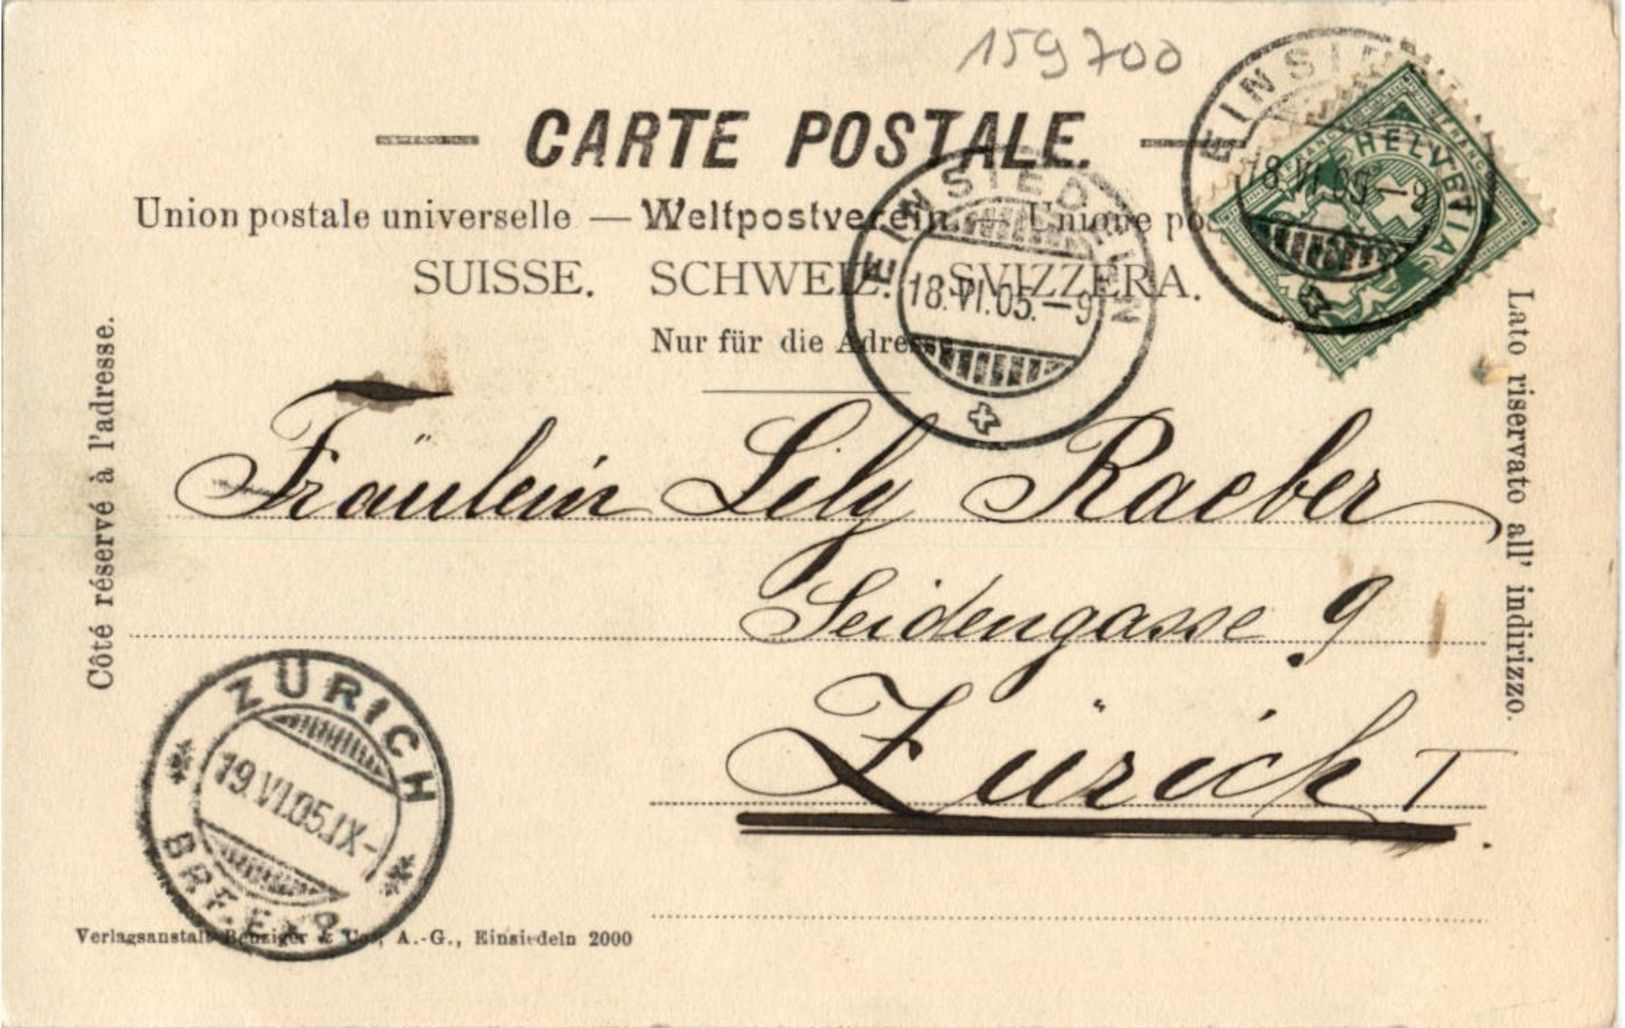 159700
CARTE POSTALE.
Union postale universelle — Weltpostverein. — Unione pos
SUISSE. SCHWEIZ. SVIZZERA.
Nur für die Adresse
EINSIEDELN
18.VI.05.—9
EINSIED
18.VI.05—9
FRANCO
HELVETIA
Côté réservé à l'adresse.
Lato riservato all' indirizzo.
Fräulein Lily Raeber
Seidengasse 9.
Zürich I.
ZÜRICH
19.VI.05.IX-
BRF.EXP.
Verlagsanstalt Benziger & Co., A.-G., Einsiedeln 2000